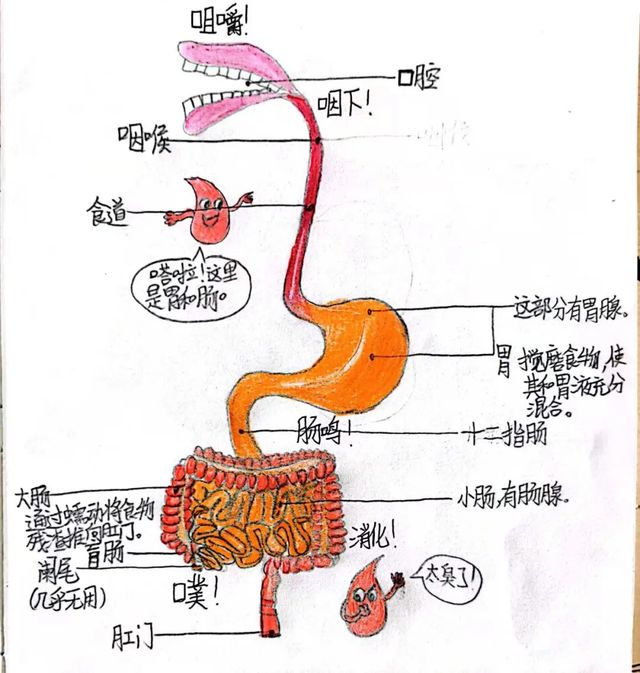 咀嚼!
口腔
咽下!
咽喉
咽喉
食道
嗒啦!这里
是胃和肠。
这部分有胃腺。
胃 搅磨食物,使
其和胃液充分
混合。
肠鸣!
十二指肠
大肠
通过蠕动将食物
残渣推向肛门。
小肠,有肠腺。
消化!
盲肠
阑尾
(几乎无用)
噗!
太臭了!
肛门